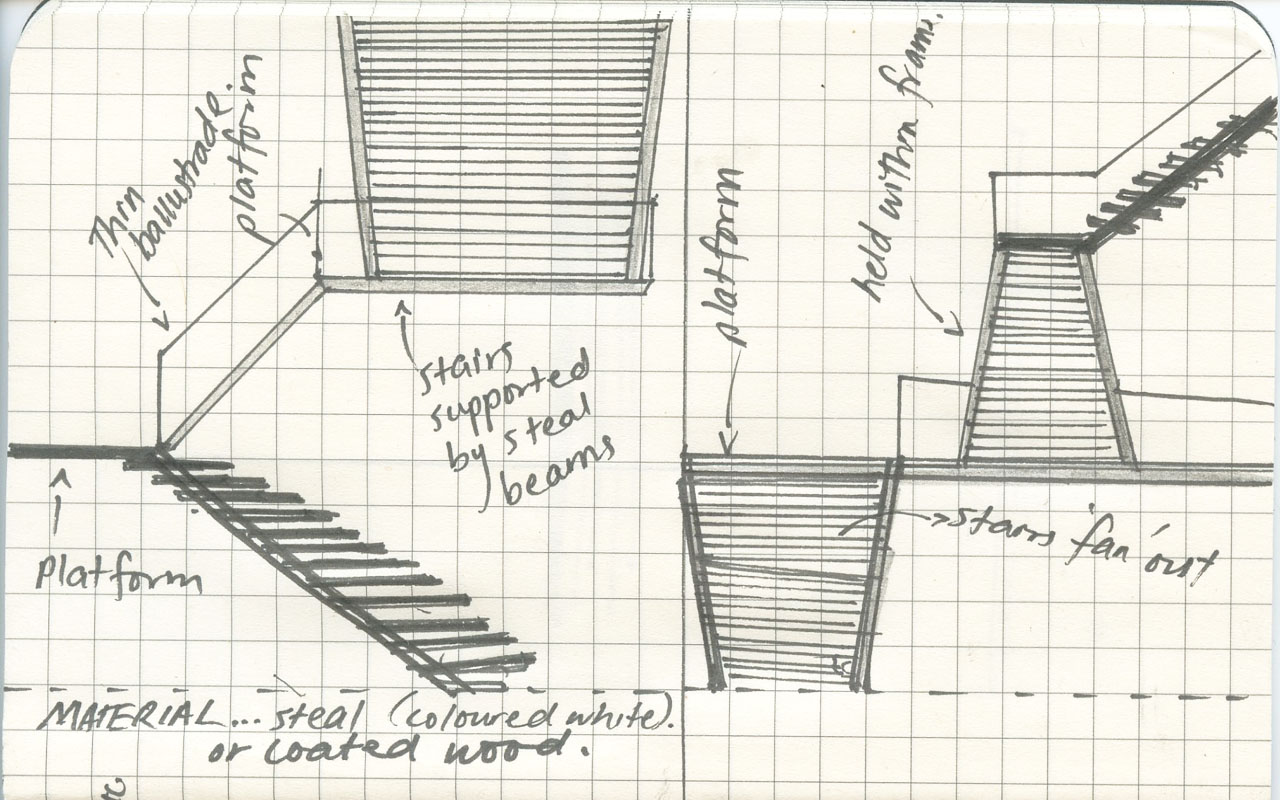 Thin
ballustrade.
platform
stairs
supported
by steal
beams
Platform
MATERIAL... steal (coloured white).
or coated wood.
platform
held within frame.
stairs 'fan' out